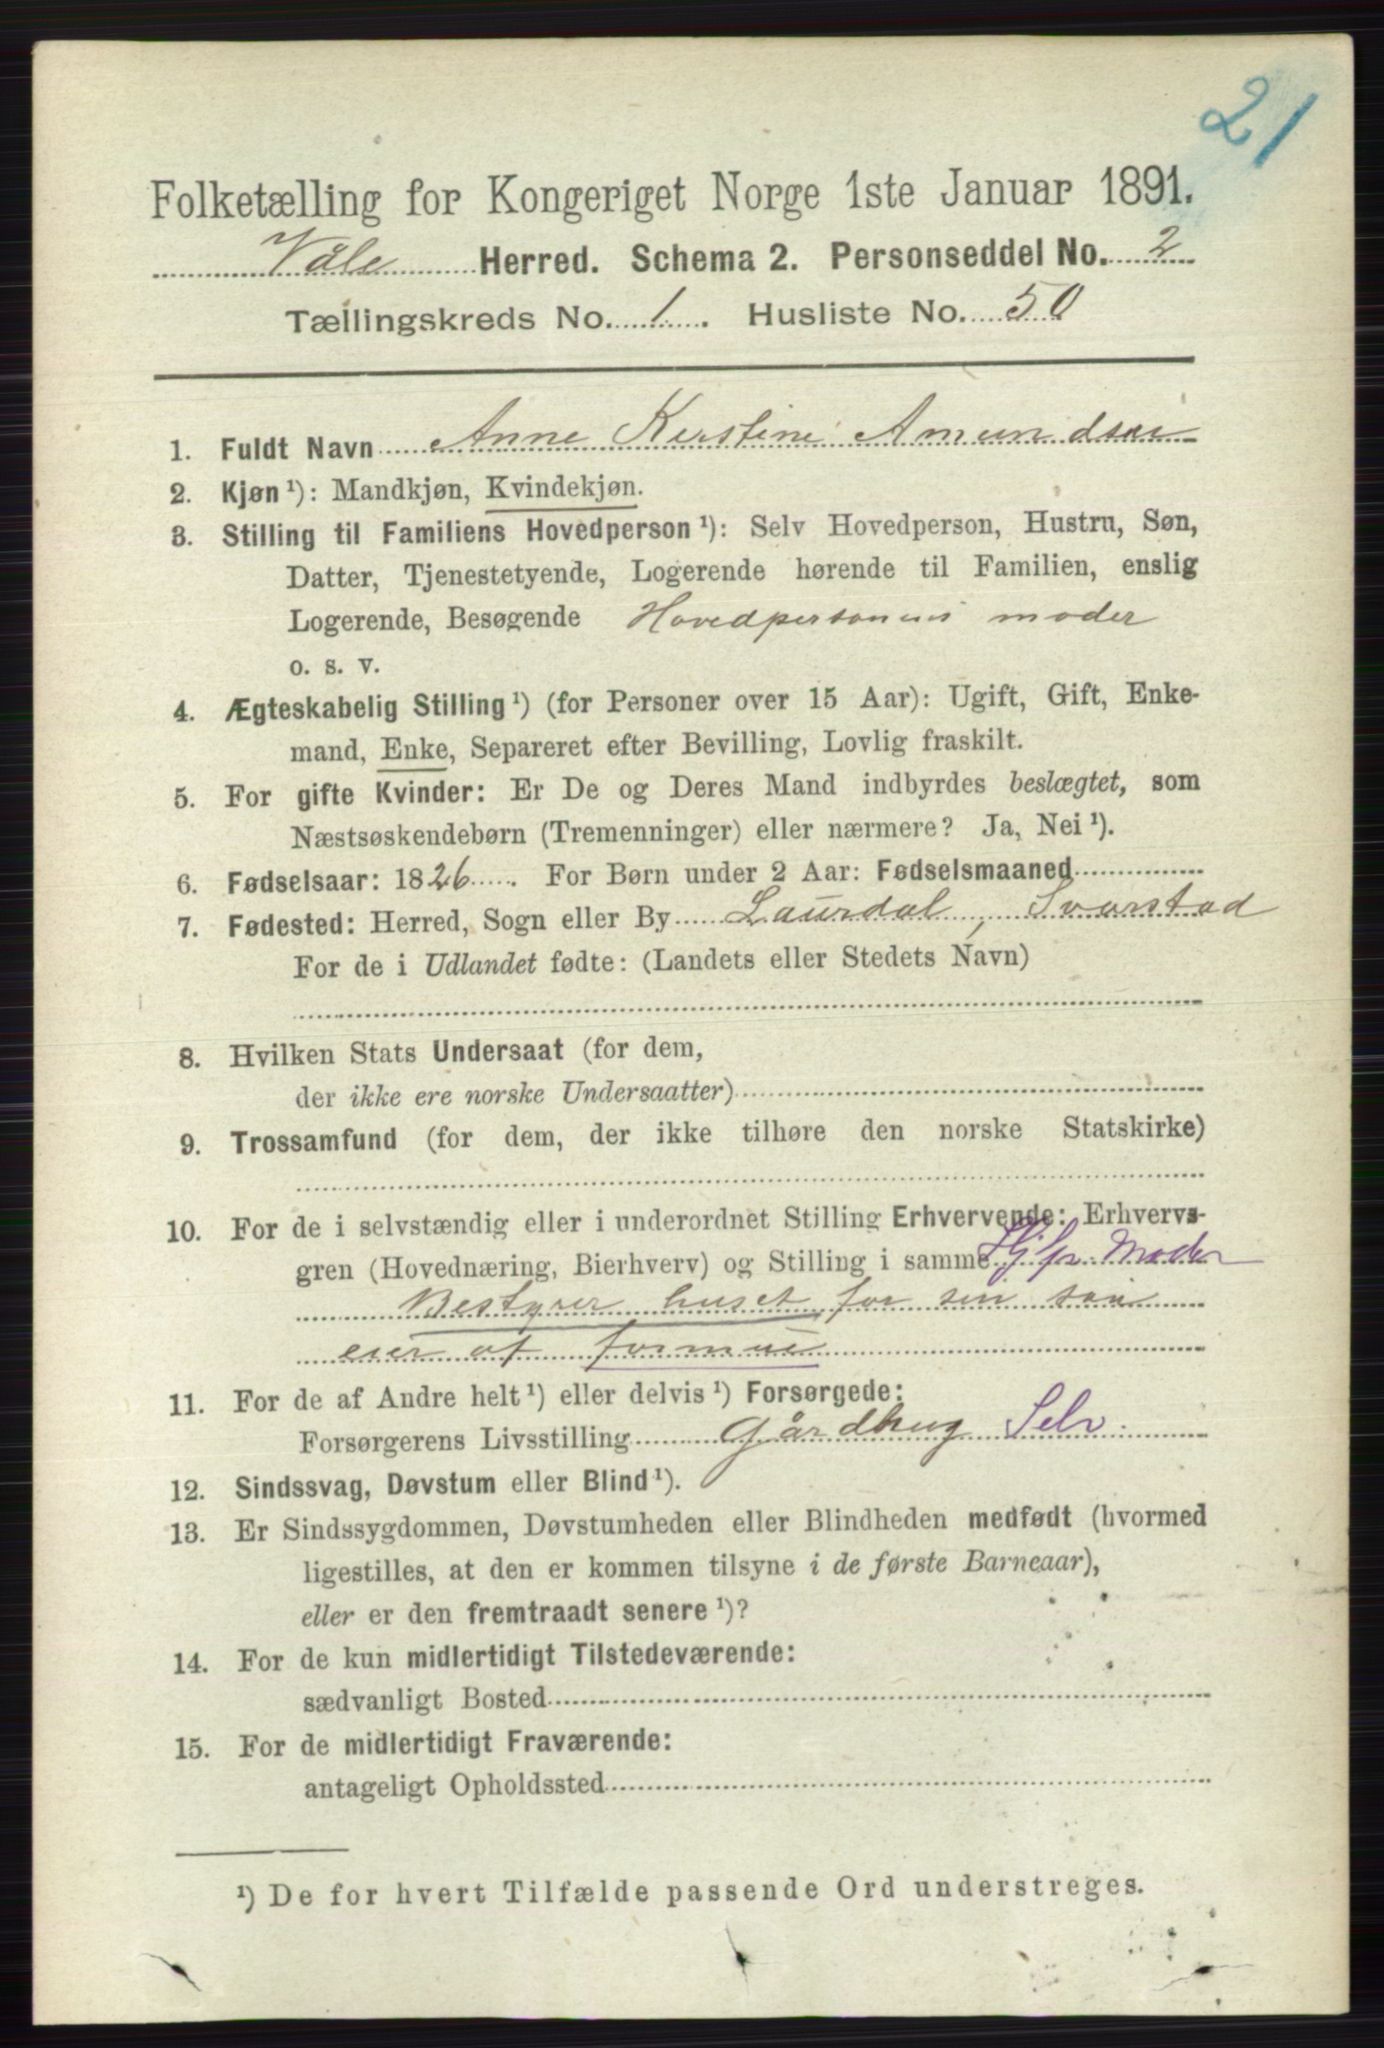 21
Folketælling for Kongeriget Norge 1ste Januar 1891.
Våle Herred. Schema 2. Personseddel No. 2
Tællingskreds No. 1. Husliste No. 50
1. Fuldt Navn Anne Kirstine Amundsen
2. Kjøn¹): Mandkjøn, Kvindekjøn.
3. Stilling til Familiens Hovedperson¹): Selv Hovedperson, Hustru, Søn,
Datter, Tjenestetyende, Logerende hørende til Familien, enslig
Logerende, Besøgende Hovedpersonens moder
o. s. v.
4. Ægteskabelig Stilling¹) (for Personer over 15 Aar): Ugift, Gift, Enke-
mand, Enke, Separeret efter Bevilling, Lovlig fraskilt.
5. For gifte Kvinder: Er De og Deres Mand indbyrdes beslægtet, som
Næstsøskendebørn (Tremenninger) eller nærmere? Ja, Nei¹).
6. Fødselsaar: 1826. For Børn under 2 Aar: Fødselsmaaned
7. Fødested: Herred, Sogn eller By Laurdal, Svarstad
For de i Udlandet fødte: (Landets eller Stedets Navn)
8. Hvilken Stats Undersaat (for dem,
der ikke ere norske Undersaatter)
9. Trossamfund (for dem, der ikke tilhøre den norske Statskirke)
10. For de i selvstændig eller i underordnet Stilling Erhvervende: Erhvervs-
gren (Hovednæring, Bierhverv) og Stilling i samme Hjlp. Moder
Bestyrer huset for sin søn
eier af formue
11. For de af Andre helt¹) eller delvis¹) Forsørgede:
Forsørgerens Livsstilling Gårdbrug Selv.
12. Sindssvag, Døvstum eller Blind¹).
13. Er Sindssygdommen, Døvstumheden eller Blindheden medfødt (hvormed
ligestilles, at den er kommen tilsyne i de første Barneaar),
eller er den fremtraadt senere¹)?
14. For de kun midlertidigt Tilstedeværende:
sædvanligt Bosted
15. For de midlertidigt Fraværende:
antageligt Opholdssted
¹) De for hvert Tilfælde passende Ord understreges.